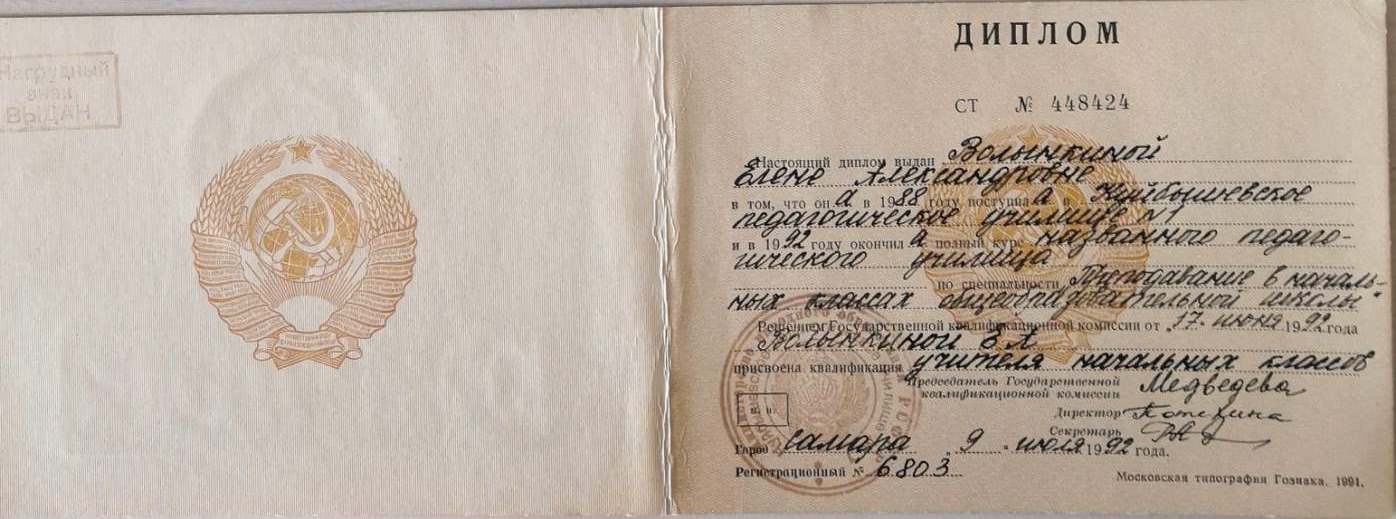 Нагрудный
знак
ВЫДАН
ДИПЛОМ
СТ № 448424
Настоящий диплом выдан Волынкиной
Елене Александровне
в том, что он а в 1988 году поступил а в Куйбышевское
педагогическое училище №1
и в 1992 году окончил а полный курс названного педаго-
гического училища
по специальности „Преподавание в началь-
ных классах общеобразовательной школы"
Решением Государственной квалификационной комиссии от 17 июня 1992 года
Волынкиной Е А
присвоена квалификация учителя начальных классов
Председатель Государственной
квалификационной комиссии Медведева
Директор
Секретарь
М. П.
Город Самара „ 9 " июля 1992 года.
Регистрационный № 6803
Московская типография Гознака. 1991.